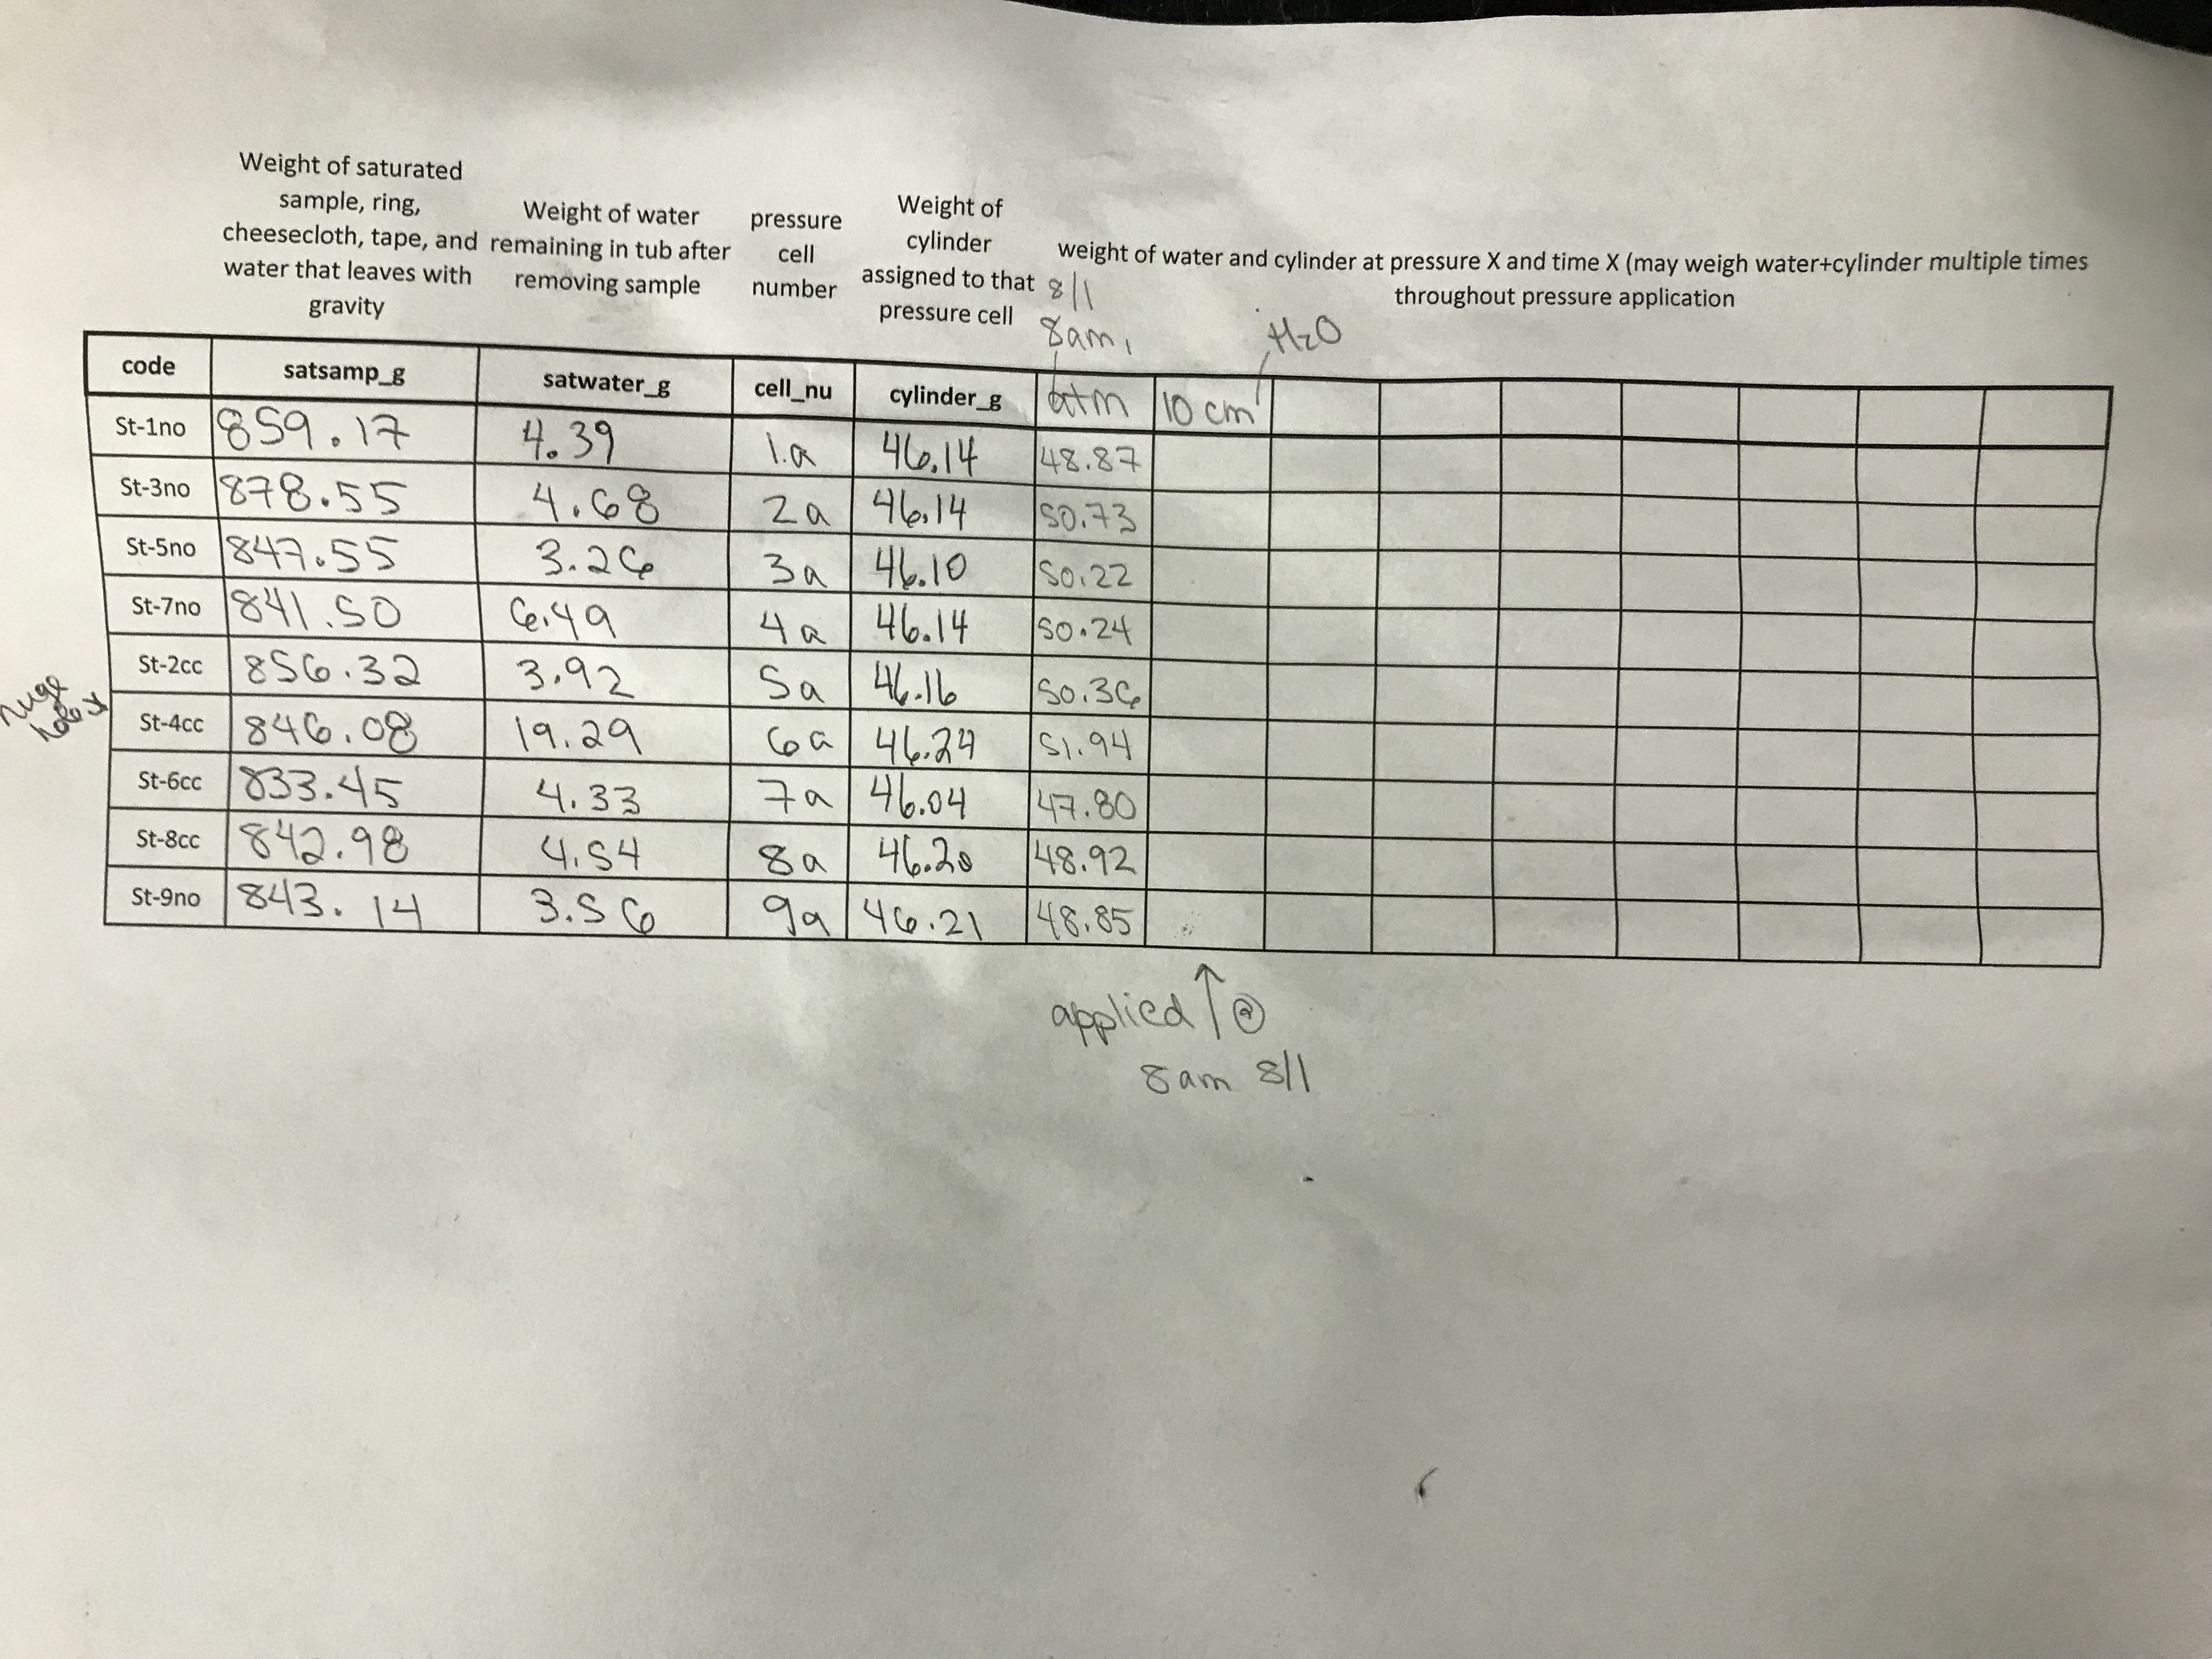 Weight of saturated
sample, ring,
cheesecloth, tape, and
water that leaves with
gravity
Weight of water
remaining in tub after
removing sample
pressure
cell
number
Weight of
cylinder
assigned to that
pressure cell
weight of water and cylinder at pressure X and time X (may weigh water+cylinder multiple times
throughout pressure application
8/1
8am
H2O
code satsamp_g satwater_g cell_nu cylinder_g atm 10 cm
St-1no 859.17 4.39 1a 46.14 48.87
St-3no 878.55 4.68 2a 46.14 50.73
St-5no 847.55 3.26 3a 46.10 50.22
St-7no 841.50 6.49 4a 46.14 50.24
St-2cc 856.32 3.92 5a 46.16 50.36
huge
St-4cc 846.08 19.29 6a 46.24 51.94
St-6cc 833.45 4.33 7a 46.04 47.80
St-8cc 842.98 4.54 8a 46.20 48.92
St-9no 843.14 3.56 9a 46.21 48.85
applied ↑ @
8am 8/1